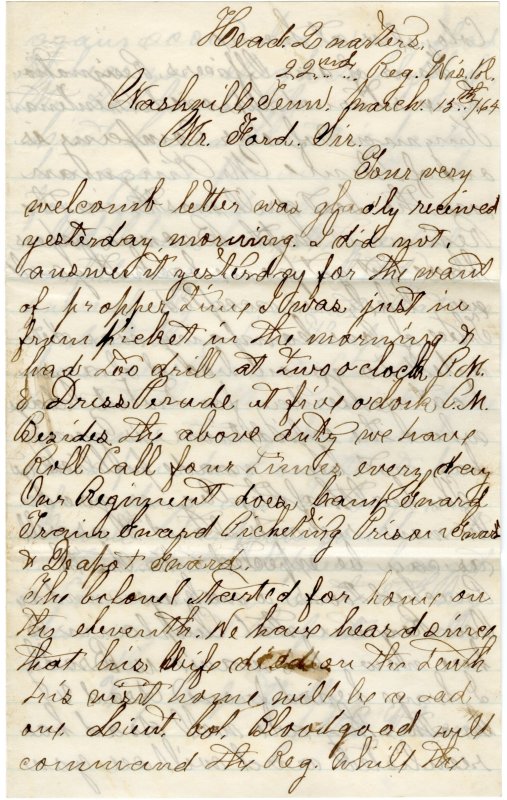 Head. Quarters.
22nd Reg. Wis. V.
Nashville Tenn. March. 15th/64
Mr. Ford. Sir.
Your very
welcomb letter was gladly recieved
yesterday morning. I did not.
answer it yesterday for the want
of propper time I was just in
from picket in the morning &
had too drill at two o clock P.M.
& Dress Perade at five oclock P.M.
Bezides the above duty we have
Roll Call four times every day
Our Regiment does Camp Guard
Train Guard Picketing Prison Guard
& Deapot Guard.
The Colonel started for home on
the eleventh. We have heard since
that his Wife died on the tenth
his visit home will be a sad
one. Lieut. Col. Bloodgood will
command the Reg. whilt the